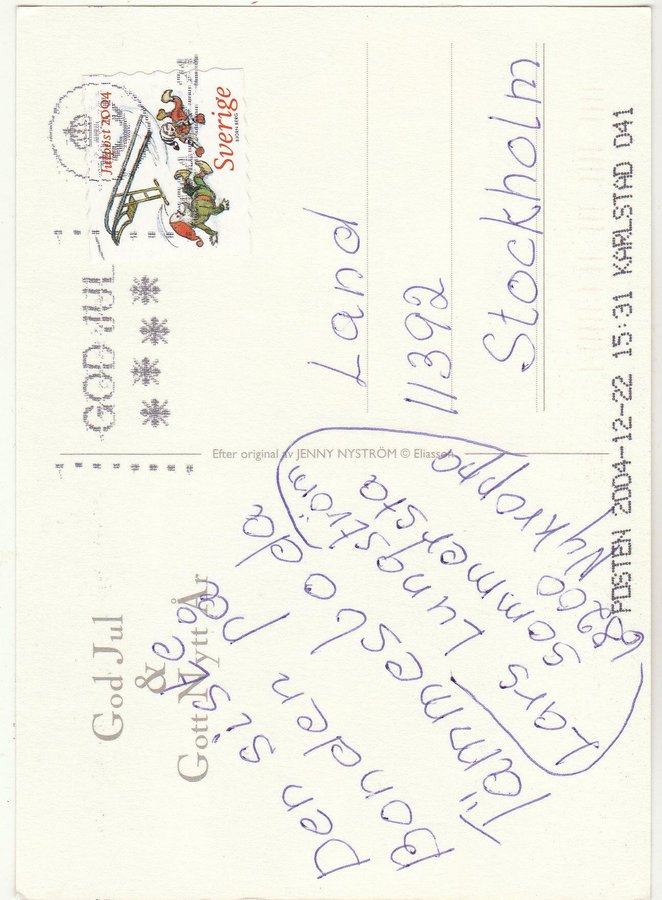 God Jul
&
Gott Nytt År
Den siste
Bonden på
Tämmesboda
Lars Lungström
Sommehsta
68260 Nykroppa
Efter original av JENNY NYSTRÖM © Eliasson
GOD JUL
Julpost 2004
Sverige
Land
11392
Stockholm
POSTEN 2004-12-22 15:31 KARLSTAD 041